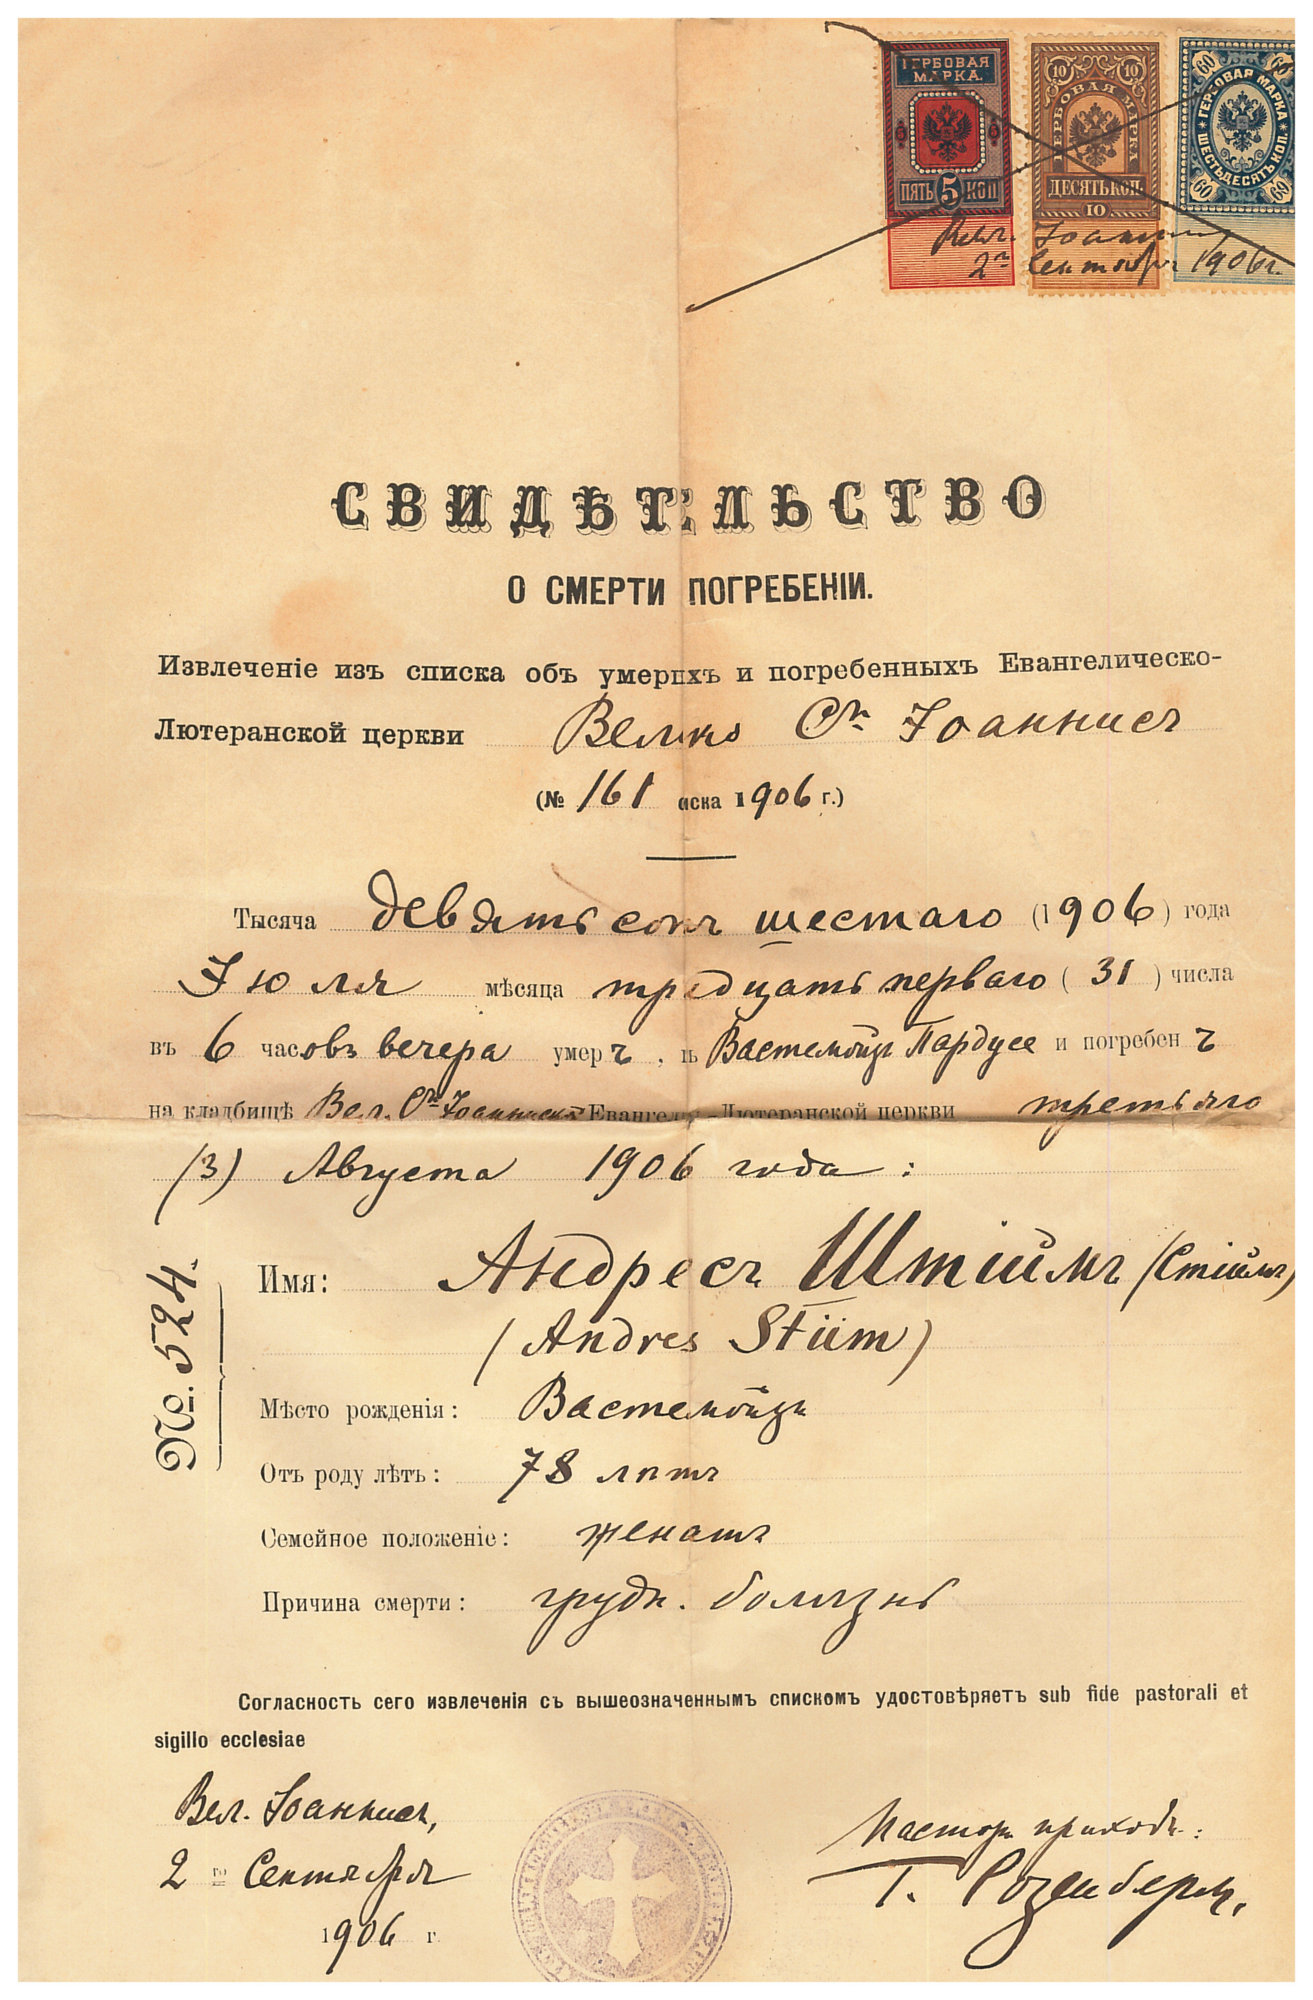 ГЕРБОВАЯ
МАРКА.
5
ПЯТЬ КОП
10 10
ГЕРБОВАЯ МАРКА
ДЕСЯТЬ КОП.
10
60 60
ГЕРБОВАЯ МАРКА
ШЕСТЬДЕСЯТЪ КОП.
60 60
Вел. Іоаннисъ
2го Сентября 1906 г.
СВИДѢТЕЛЬСТВО
О СМЕРТИ ПОГРЕБЕНІИ.
Извлеченіе изъ списка объ умершихъ и погребенныхъ Евангелическо-
Лютеранской церкви Велико Ст Іоаннисъ
(№ 161 списка 1906 г.)
Тысяча девятьсотъ шестаго (1906) года
Іюля мѣсяца тридцать перваго (31) числа
въ 6 часовъ вечера умеръ, въ Вастемойзъ Пардусе и погребенъ
на кладбищѣ Вел. Ст Іоаннисъ Евангел.-Лютеранской церкви третьяго
(3) Августа 1906 года:
Имя: Андресъ Штіймъ (Стіймъ)
(Andres Stiim)
№. 524.
Мѣсто рожденія: Вастемойзъ
Отъ роду лѣтъ: 78 лѣтъ
Семейное положеніе: женатъ
Причина смерти: грудн. болѣзнь
Согласность сего извлеченія съ вышеозначеннымъ спискомъ удостовѣряетъ sub fide pastorali et
sigillo ecclesiae
Вел. Іоаннисъ,
2 го Сентября
1906 г.
Пасторъ прихода:
Г. Розенбергъ.